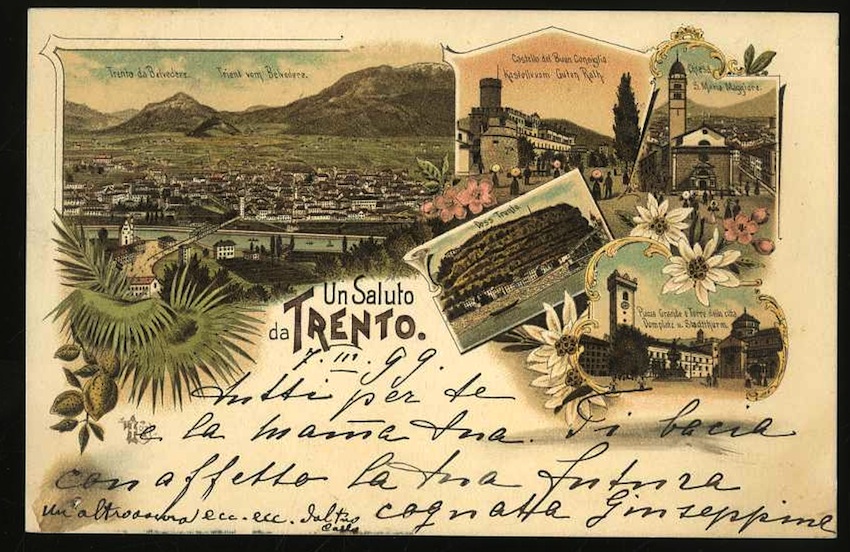 Trento da Belvedere. Trient vom Belvedere.
Castello del Buon Consiglio
Kastell vom Guten Rath.
Chiesa
S. Maria Maggiore.
Doss Trento
Piazza Grande e Torre della città
Domplatz u. Stadtthurm.
Un Saluto
da TRENTO.
7. III. 99.
tutti per te
e la mamma tua. Ti bacia
con affetto la tua futura
cognatta Giuseppine
un'altro ecc. ecc.
Carlo